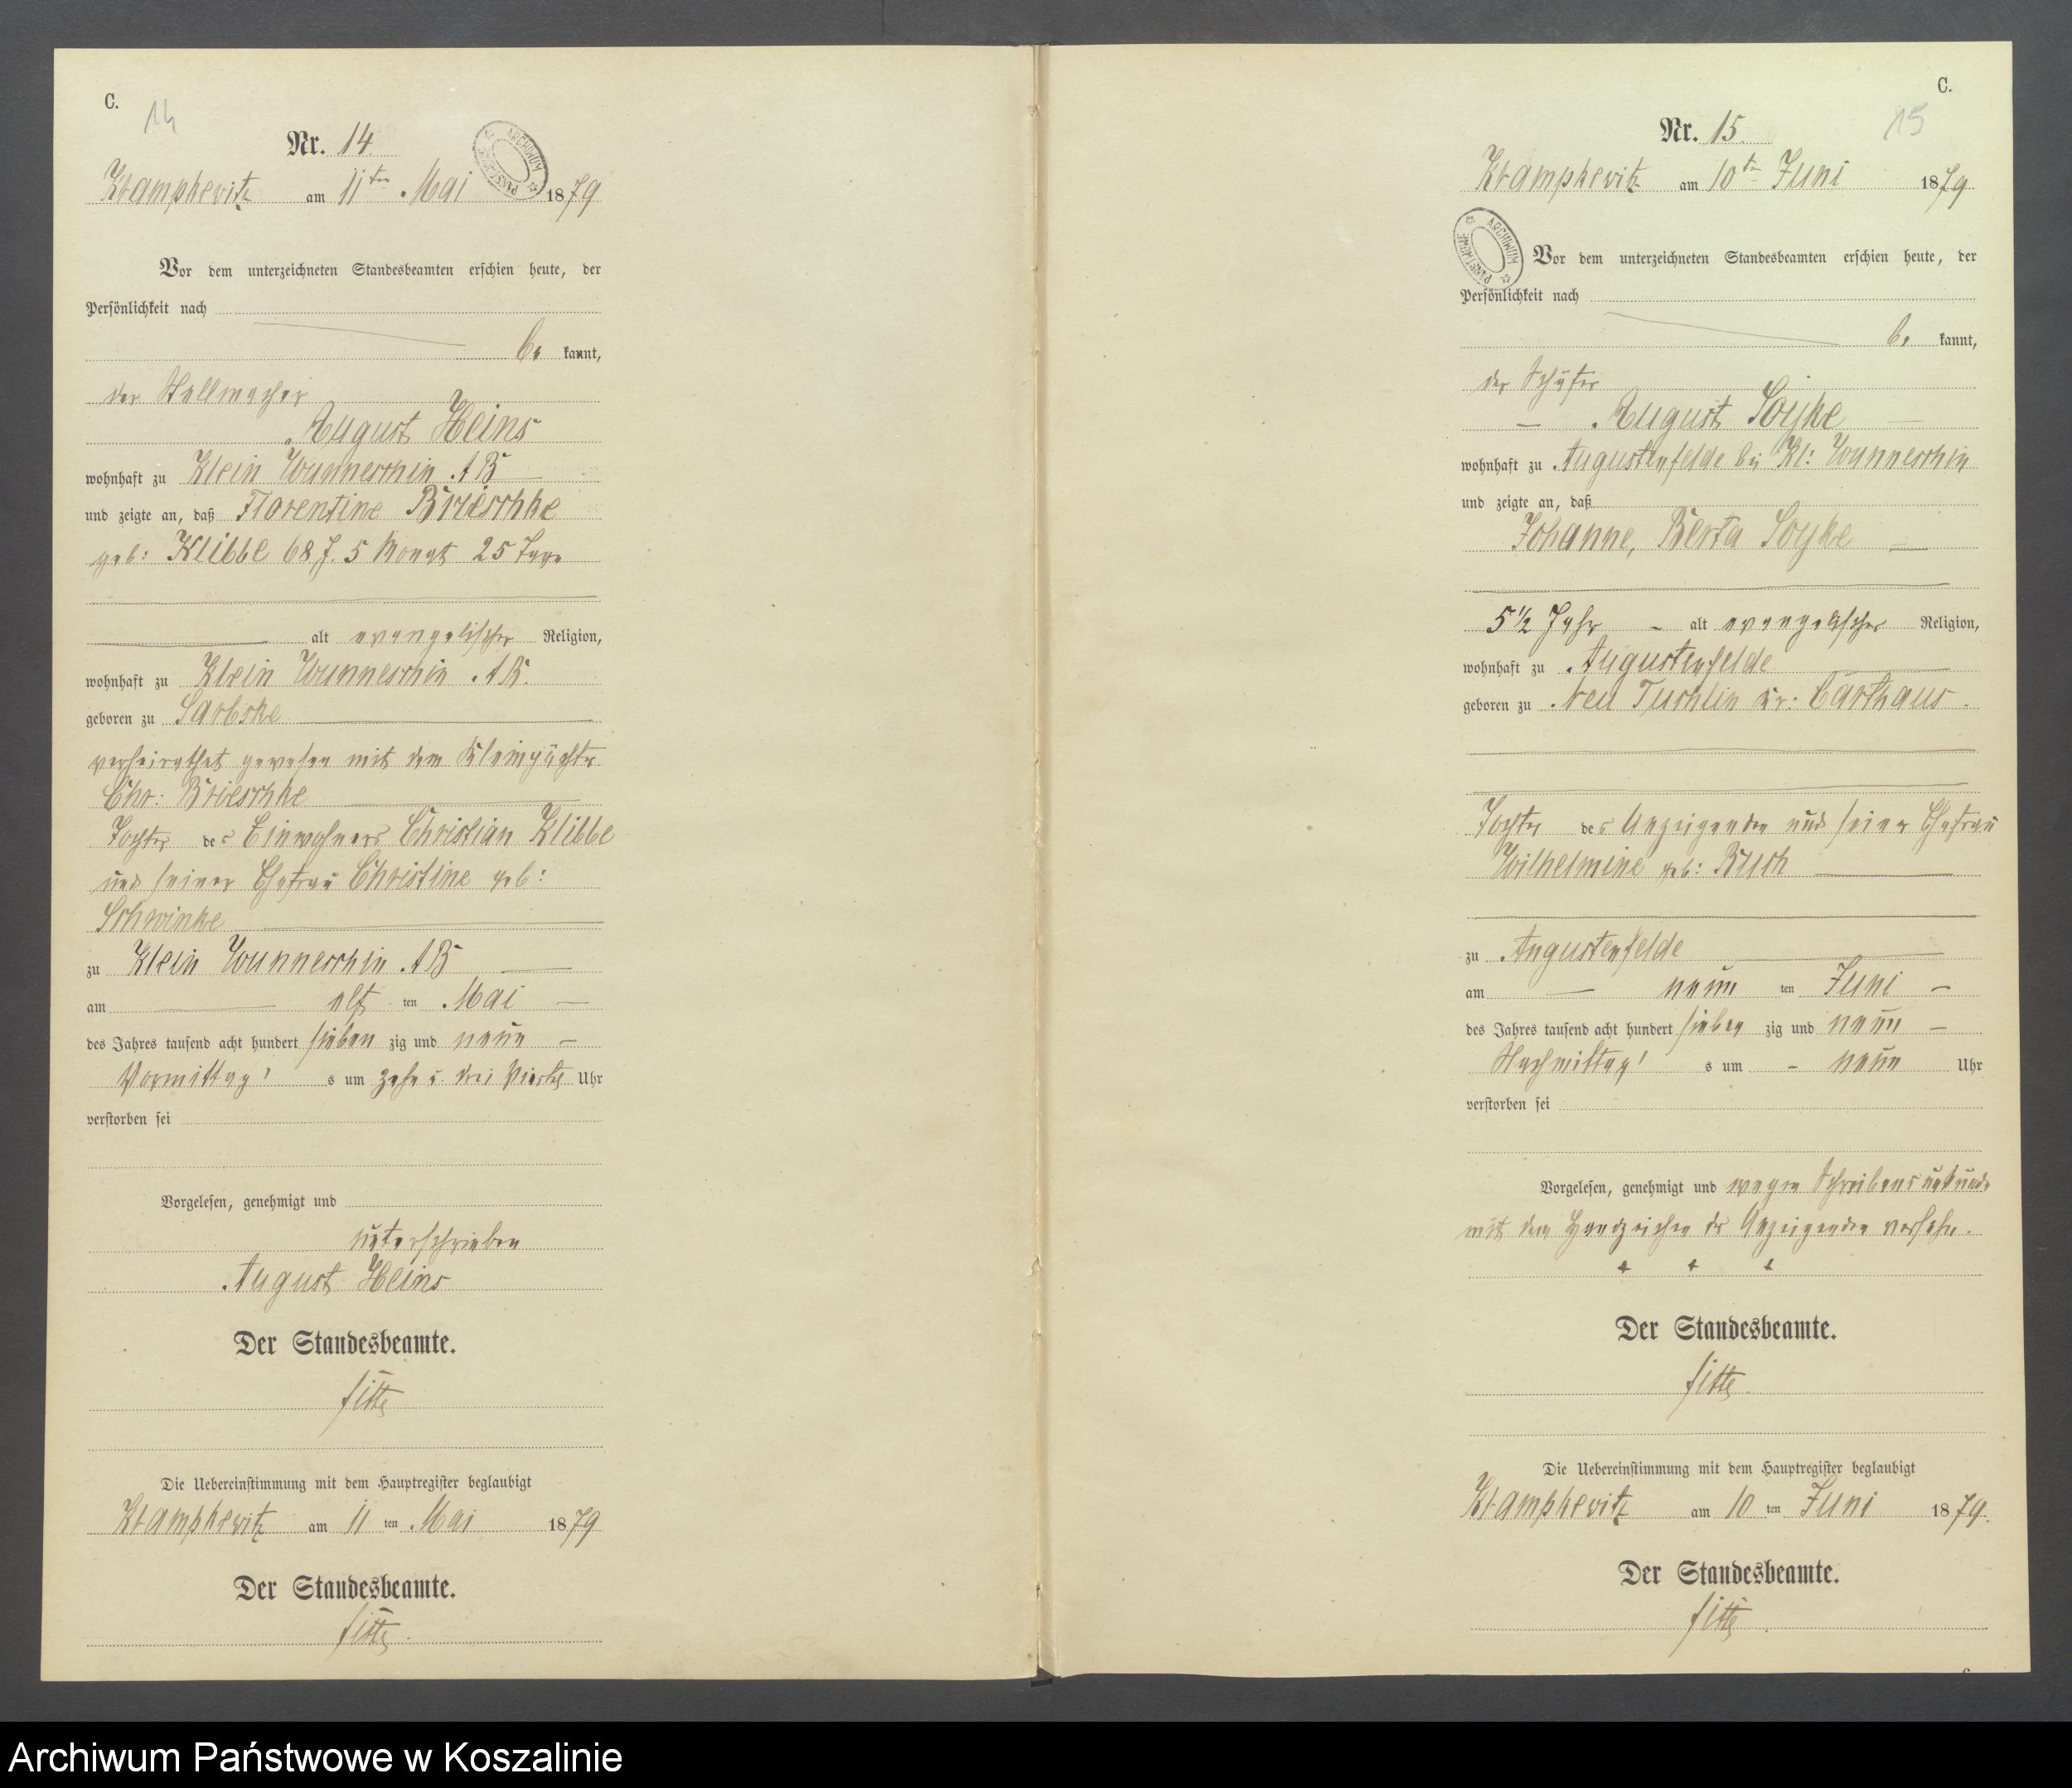 C.
14
Nr. 14.
ARCHIWUM PAŃSTWOWE
Krampkewitz am 11ten Mai 1879
Vor dem unterzeichneten Standesbeamten erschien heute, der
Persönlichkeit nach
be kannt,
der Stellmacher
August Heins
wohnhaft zu Klein Wunneschin AB
und zeigte an, daß Florentine Brieschke
geb: Klibbe 68 J. 5 Monat 25 Tage
alt evangelischer Religion,
wohnhaft zu Klein Wunneschin AB.
geboren zu Sarbske
verheirathet gewesen mit dem Kleinpächter
Chr: Brieschke
Tochter des Einwohners Christian Klibbe
und seiner Ehefrau Christine geb:
Schwinke
zu Klein Wunneschin AB
am elf ten Mai
des Jahres tausend acht hundert sieben zig und neun
Vormittag s um zehn u. drei Viertel Uhr
verstorben sei
Vorgelesen, genehmigt und
unterschrieben
August Heins
Der Standesbeamte.
Die Uebereinstimmung mit dem Hauptregister beglaubigt
Krampkewitz am 11 ten Mai 1879
Der Standesbeamte.
C.
15
Nr. 15.
Krampkewitz am 10ten Juni 1879
ARCHIWUM PAŃSTWOWE
Vor dem unterzeichneten Standesbeamten erschien heute, der
Persönlichkeit nach
be kannt,
der Schäfer
August Soyke
wohnhaft zu Augustenfelde bei Kl: Wunneschin
und zeigte an, daß
Johanne, Berta Soyke
5 1/2 Jahr alt evangelischer Religion,
wohnhaft zu Augustenfelde
geboren zu Neu Tuchlin Kr: Carthaus.
Tochter des Anzeigenden und seiner Ehefrau
Wilhelmine geb: Busch
zu Augustenfelde
am neun ten Juni
des Jahres tausend acht hundert sieben zig und neun
Nachmittag s um neun Uhr
verstorben sei
Vorgelesen, genehmigt und wegen Schreibensunkunde
mit dem Handzeichen des Anzeigenden versehen.
+ + +
Der Standesbeamte.
Die Uebereinstimmung mit dem Hauptregister beglaubigt
Krampkewitz am 10 ten Juni 1879.
Der Standesbeamte.
Archiwum Państwowe w Koszalinie